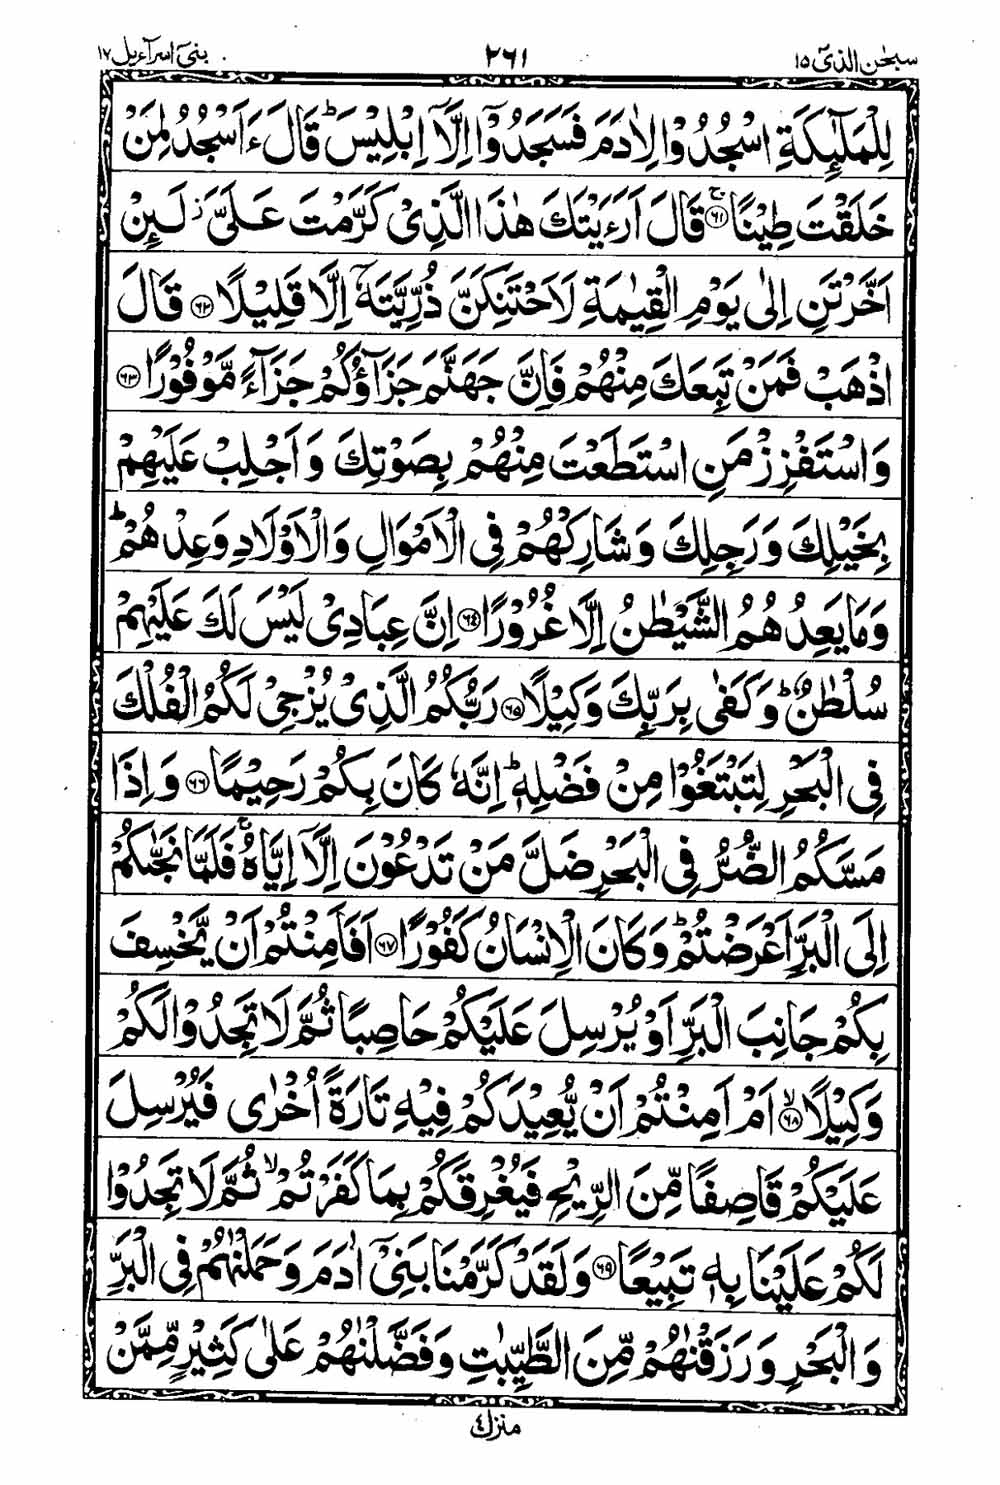 سبحٰن الذىٓ ١٥
٢٦١
بنىٓ اسرآءيل ١٧
لِلْمَلٰٓئِكَةِ اسْجُدُوْا لِاٰدَمَ فَسَجَدُوْۤا اِلَّاۤ اِبْلِيْسَ ؕ قَالَ ءَاَسْجُدُ لِمَنْ
خَلَقْتَ طِيْنًا ۚ﴿٦١﴾ قَالَ اَرَءَيْتَكَ هٰذَا الَّذِىْ كَرَّمْتَ عَلَىَّ ۫ لَئِنْ
اَخَّرْتَنِ اِلٰى يَوْمِ الْقِيٰمَةِ لَاَحْتَنِكَنَّ ذُرِّيَّتَهٗۤ اِلَّا قَلِيْلًا ﴿٦٢﴾ قَالَ
اذْهَبْ فَمَنْ تَبِعَكَ مِنْهُمْ فَاِنَّ جَهَنَّمَ جَزَآؤُكُمْ جَزَآءً مَّوْفُوْرًا ﴿٦٣﴾
وَاسْتَفْزِزْ مَنِ اسْتَطَعْتَ مِنْهُمْ بِصَوْتِكَ وَاَجْلِبْ عَلَيْهِمْ
بِخَيْلِكَ وَرَجِلِكَ وَشَارِكْهُمْ فِى الْاَمْوَالِ وَالْاَوْلَادِ وَعِدْهُمْ ؕ
وَمَا يَعِدُهُمُ الشَّيْطٰنُ اِلَّا غُرُوْرًا ﴿٦٤﴾ اِنَّ عِبَادِىْ لَيْسَ لَكَ عَلَيْهِمْ
سُلْطٰنٌ ؕ وَكَفٰى بِرَبِّكَ وَكِيْلًا ﴿٦٥﴾ رَبُّكُمُ الَّذِىْ يُزْجِىْ لَكُمُ الْفُلْكَ
فِى الْبَحْرِ لِتَبْتَغُوْا مِنْ فَضْلِهٖ ؕ اِنَّهٗ كَانَ بِكُمْ رَحِيْمًا ﴿٦٦﴾ وَاِذَا
مَسَّكُمُ الضُّرُّ فِى الْبَحْرِ ضَلَّ مَنْ تَدْعُوْنَ اِلَّاۤ اِيَّاهُ ۚ فَلَمَّا نَجّٰىكُمْ
اِلَى الْبَرِّ اَعْرَضْتُمْ ؕ وَكَانَ الْاِنْسَانُ كَفُوْرًا ﴿٦٧﴾ اَفَاَمِنْتُمْ اَنْ يَّخْسِفَ
بِكُمْ جَانِبَ الْبَرِّ اَوْ يُرْسِلَ عَلَيْكُمْ حَاصِبًا ثُمَّ لَا تَجِدُوْا لَكُمْ
وَكِيْلًا ۙ﴿٦٨﴾ اَمْ اَمِنْتُمْ اَنْ يُّعِيْدَكُمْ فِيْهِ تَارَةً اُخْرٰى فَيُرْسِلَ
عَلَيْكُمْ قَاصِفًا مِّنَ الرِّيْحِ فَيُغْرِقَكُمْ بِمَا كَفَرْتُمْ ۙ ثُمَّ لَا تَجِدُوْا
لَكُمْ عَلَيْنَا بِهٖ تَبِيْعًا ﴿٦٩﴾ وَلَقَدْ كَرَّمْنَا بَنِىْۤ اٰدَمَ وَحَمَلْنٰهُمْ فِى الْبَرِّ
وَالْبَحْرِ وَرَزَقْنٰهُمْ مِّنَ الطَّيِّبٰتِ وَفَضَّلْنٰهُمْ عَلٰى كَثِيْرٍ مِّمَّنْ
منزل ٤